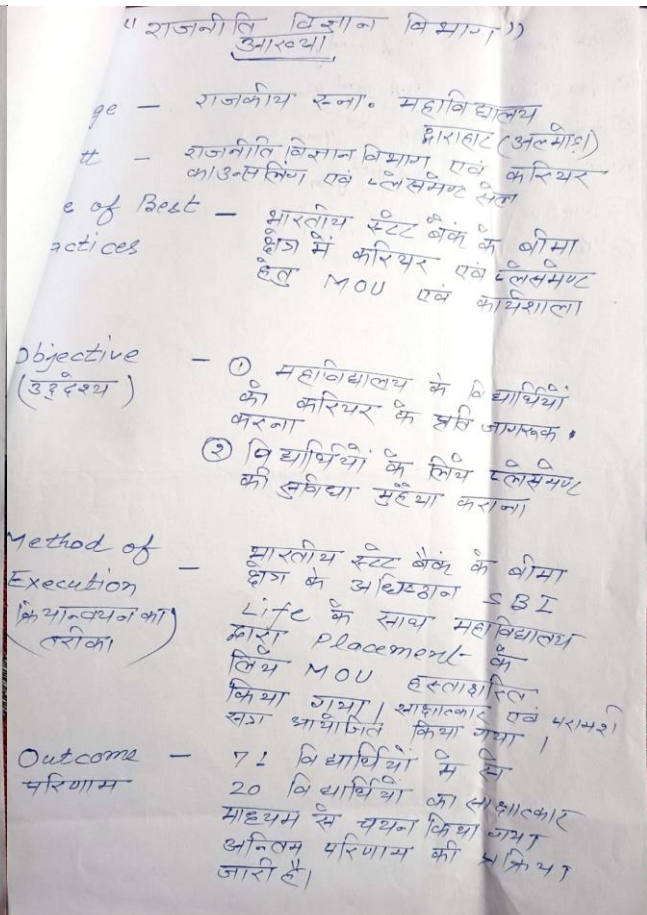 "राजनीति विज्ञान विभाग"
आख्या
ge — राजकीय स्ना० महाविद्यालय
द्वाराहाट (अल्मोड़ा)
tt — राजनीति विज्ञान विभाग एवं करियर
काउन्सलिंग एवं प्लेसमेण्ट सेल
e of Best — भारतीय स्टेट बैंक के बीमा
actices क्षेत्र में करियर एवं प्लेसमेण्ट
हेतु MOU एवं कार्यशाला
Objective — ① महाविद्यालय के विद्यार्थियों
(उद्देश्य) को करियर के प्रति जागरूक
करना
② विद्यार्थियों के लिये प्लेसमेण्ट
की सुविधा मुहैया कराना
Method of — भारतीय स्टेट बैंक के बीमा
Execution क्षेत्र के अधिष्ठान SBI
(क्रियान्वयन का Life के साथ महाविद्यालय
तरीका) द्वारा Placement के
लिये MOU हस्ताक्षरित
किया गया। साक्षात्कार एवं परामर्श
सत्र आयोजित किया गया।
Outcome — 71 विद्यार्थियों में से
परिणाम 20 विद्यार्थियों का साक्षात्कार
माध्यम से चयन किया गया
अन्तिम परिणाम की प्रक्रिया
जारी है।